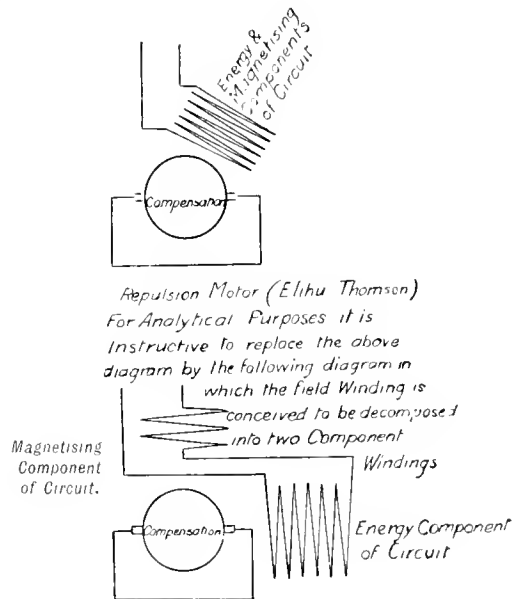 Energy &
Magnetising
Components
of Circuit
Compensation
Repulsion Motor (Elihu Thomson)
For Analytical Purposes it is
Instructive to replace the above
diagram by the following diagram in
which the field Winding is
conceived to be decomposed
into two Component
Windings
Magnetising
Component
of Circuit.
Compensation
Energy Component
of Circuit